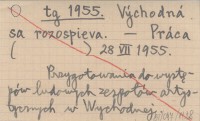 tg 1955. Východná
sa rozospieva. — Práca
( ) 28 VII 1955.
Przygotowania do wystę-
pów ludowych zespołów artys-
tycznych w Wychodnej.